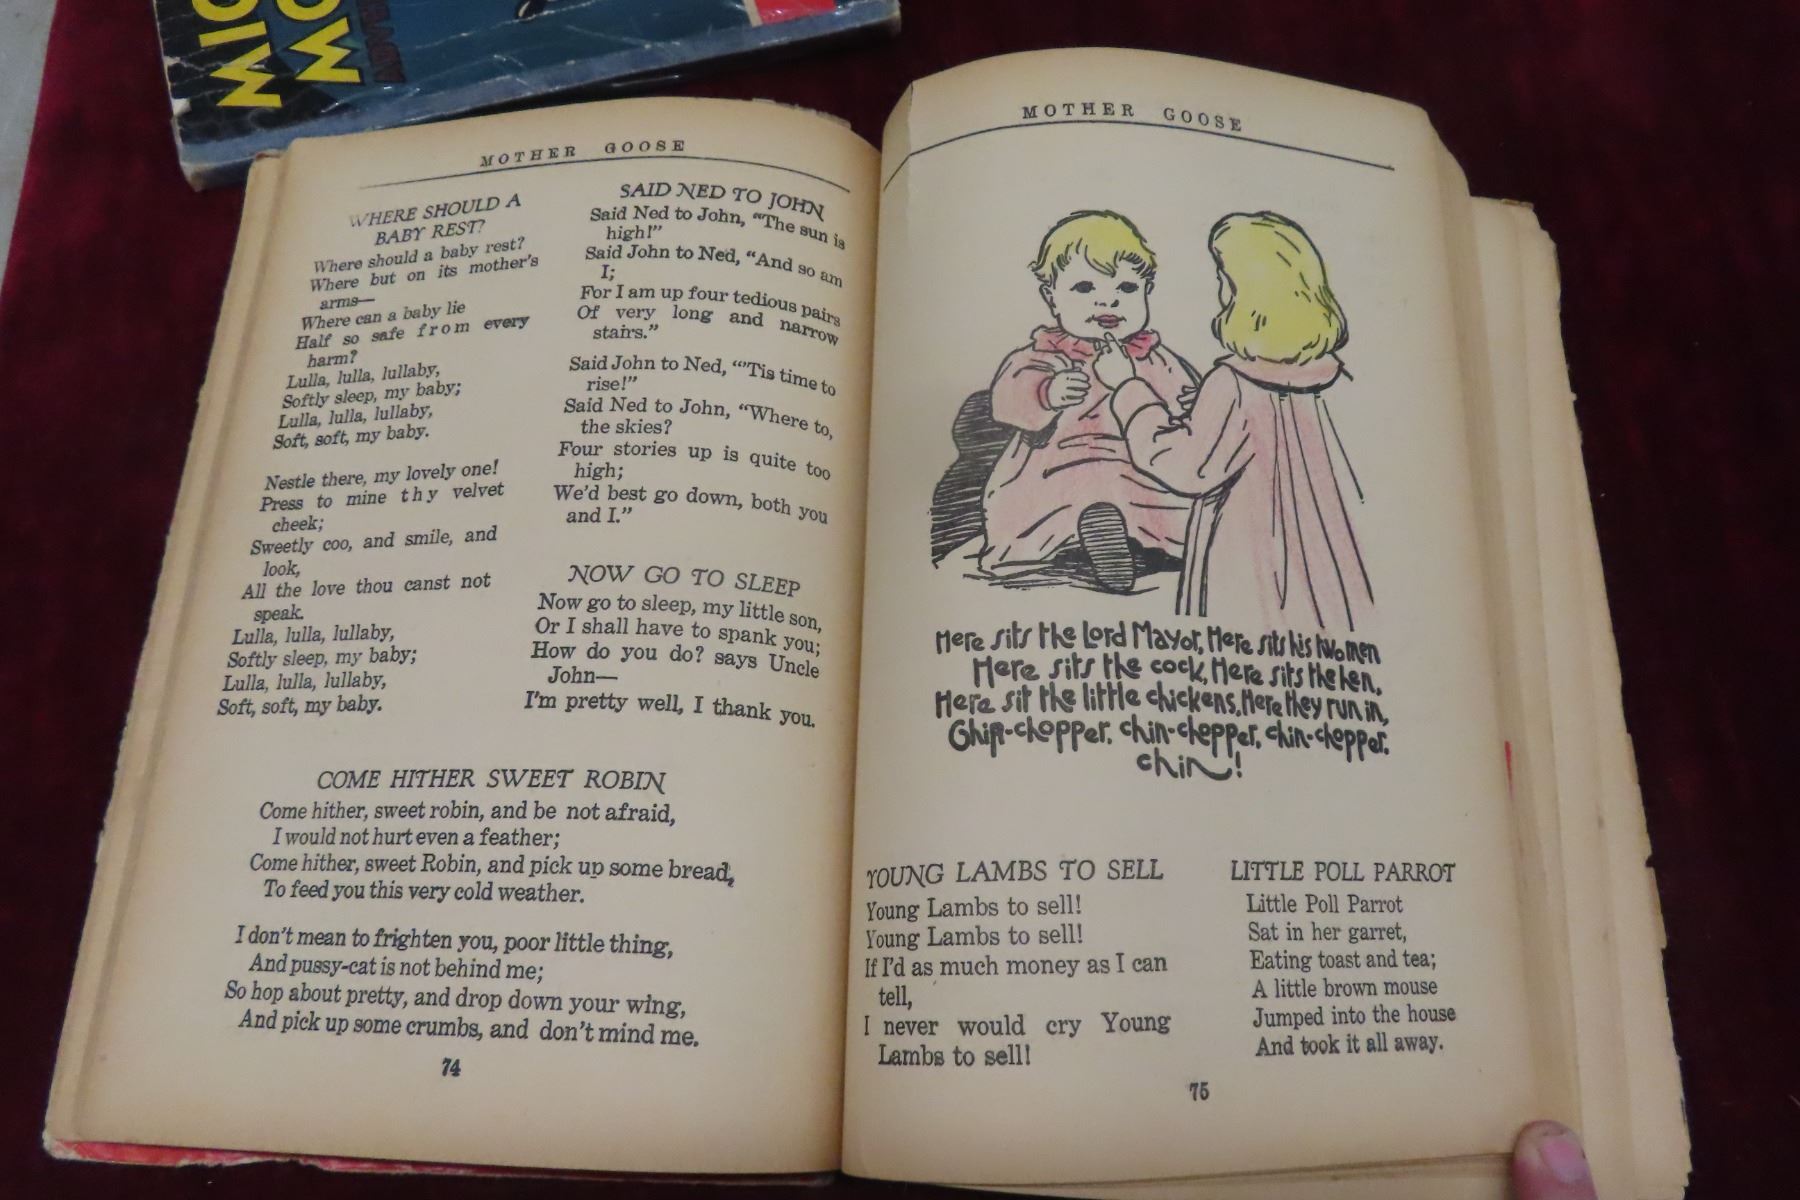 MOTHER GOOSE
WHERE SHOULD A
BABY REST?
Where should a baby rest?
Where but on its mother's
arms—
Where can a baby lie
Half so safe from every
harm?
Lulla, lulla, lullaby,
Softly sleep, my baby;
Lulla, lulla, lullaby,
Soft, soft, my baby.
Nestle there, my lovely one!
Press to mine thy velvet
cheek;
Sweetly coo, and smile, and
look,
All the love thou canst not
speak.
Lulla, lulla, lullaby,
Softly sleep, my baby;
Lulla, lulla, lullaby,
Soft, soft, my baby.
SAID NED TO JOHN
Said Ned to John, "The sun is
high!"
Said John to Ned, "And so am
I;
For I am up four tedious pairs
Of very long and narrow
stairs."
Said John to Ned, "'Tis time to
rise!"
Said Ned to John, "Where to,
the skies?
Four stories up is quite too
high;
We'd best go down, both you
and I."
NOW GO TO SLEEP
Now go to sleep, my little son,
Or I shall have to spank you;
How do you do? says Uncle
John—
I'm pretty well, I thank you.
COME HITHER SWEET ROBIN
Come hither, sweet robin, and be not afraid,
I would not hurt even a feather;
Come hither, sweet Robin, and pick up some bread,
To feed you this very cold weather.
I don't mean to frighten you, poor little thing,
And pussy-cat is not behind me;
So hop about pretty, and drop down your wing,
And pick up some crumbs, and don't mind me.
74
MOTHER GOOSE
Here sits the Lord Mayor, Here sits his two men
Here sits the cock, Here sits the hen,
Here sit the little chickens, Here they run in,
Chin-chopper, chin-chopper, chin-chopper,
chin!
YOUNG LAMBS TO SELL
Young Lambs to sell!
Young Lambs to sell!
If I'd as much money as I can
tell,
I never would cry Young
Lambs to sell!
LITTLE POLL PARROT
Little Poll Parrot
Sat in her garret,
Eating toast and tea;
A little brown mouse
Jumped into the house
And took it all away.
75